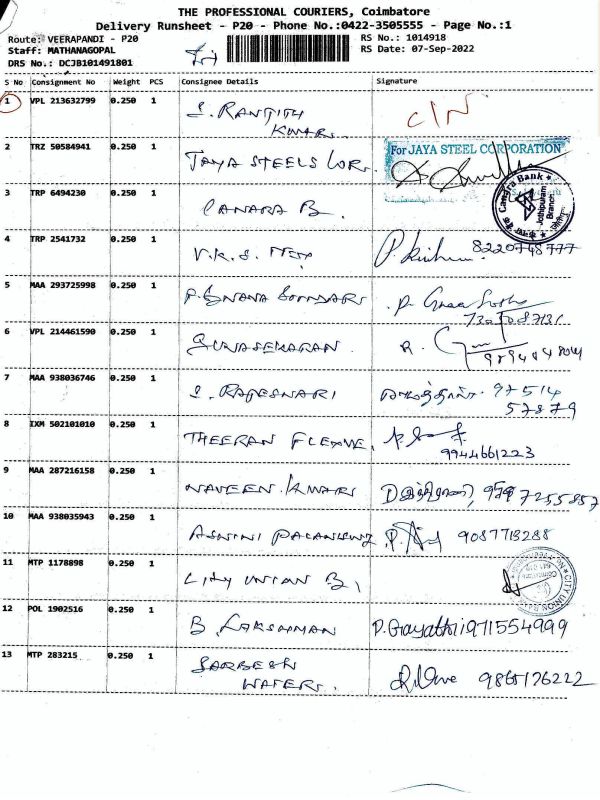 THE PROFESSIONAL COURIERS, Coimbatore
Delivery Runsheet - P20 - Phone No.:0422-3505555 - Page No.:1
Route: VEERAPANDI - P20 RS No.: 1014918
Staff: MATHANAGOPAL RS Date: 07-Sep-2022
DRS No.: DCJB101491801
S No Consignment No Weight PCS Consignee Details Signature
1 VPL 213632799 0.250 1 S. RANJITH
KUMAR
2 TRZ 50584941 0.250 1 JAYA STEELS COR. For JAYA STEEL CORPORATION
3 TRP 6494230 0.250 1 CANARA B. Canara Bank Jothipuram Branch
4 TRP 2541732 0.250 1 V.K.S. 8220748777
5 MAA 293725998 0.250 1 P.
6 VPL 214461590 0.250 1 GUNASEKARAN R.
7 MAA 938036746 0.250 1 S. RAJESWARI 97514
57879
8 IXM 502101010 0.250 1 THEERAN
9944661223
9 MAA 287216158 0.250 1 NAVEEN KUMAR
10 MAA 938035943 0.250 1 ASWINI 9087713288
11 MTP 1178898 0.250 1 CITY UNION B, CITY UNION
12 POL 1902516 0.250 1 B. LAKSHMAN P. Gayathri 971554999
13 MTP 283215 0.250 1
WATER 9865126222